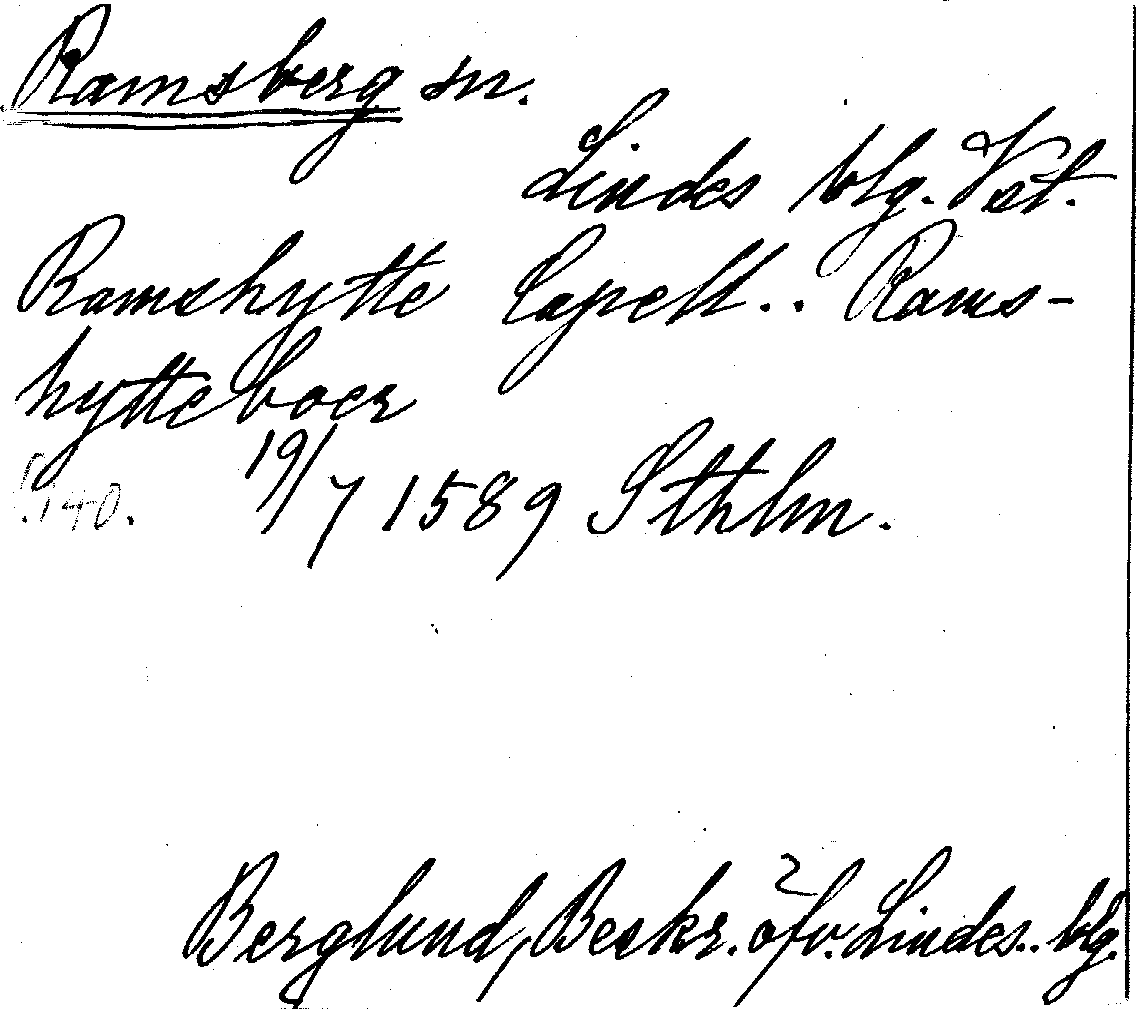 Ramsberg sn.
Lindes blg. Vst.
Ramshytte Capell.. Rams-
hytteboer
19/7 1589 Sthlm.
s. 140.
Berglund, Beskr. öfv. Lindes.. blg.